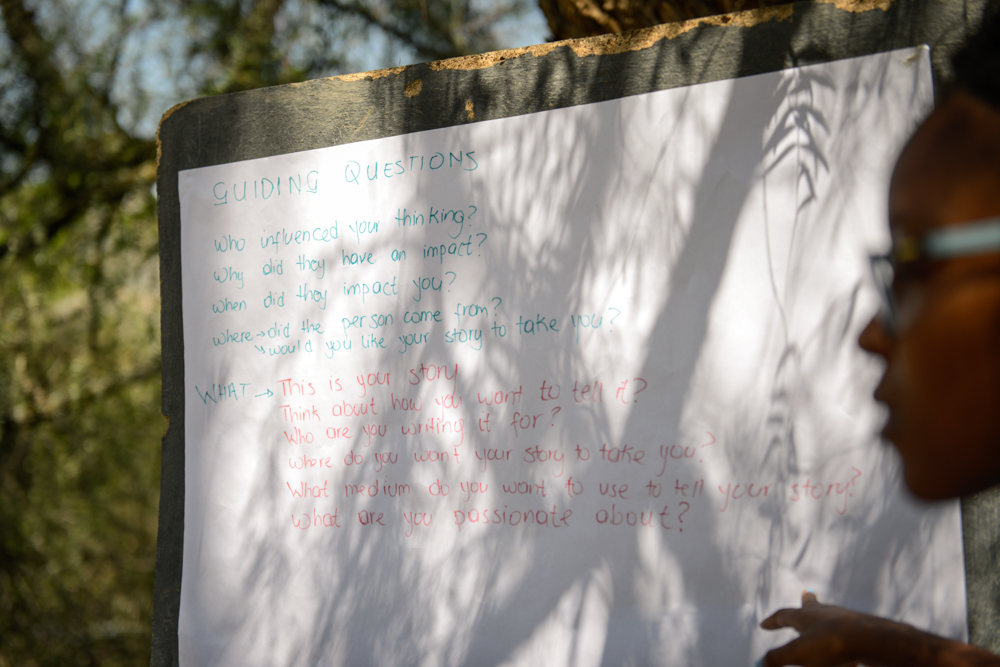 GUIDING QUESTIONS
Who influenced your thinking?
Why did they have an impact?
When did they impact you?
Where → did the person come from?
↘ would you like your story to take you?
WHAT → This is your story
Think about how you want to tell it?
Who are you writing it for?
Where do you want your story to take you?
What medium do you want to use to tell your story?
What are you passionate about?